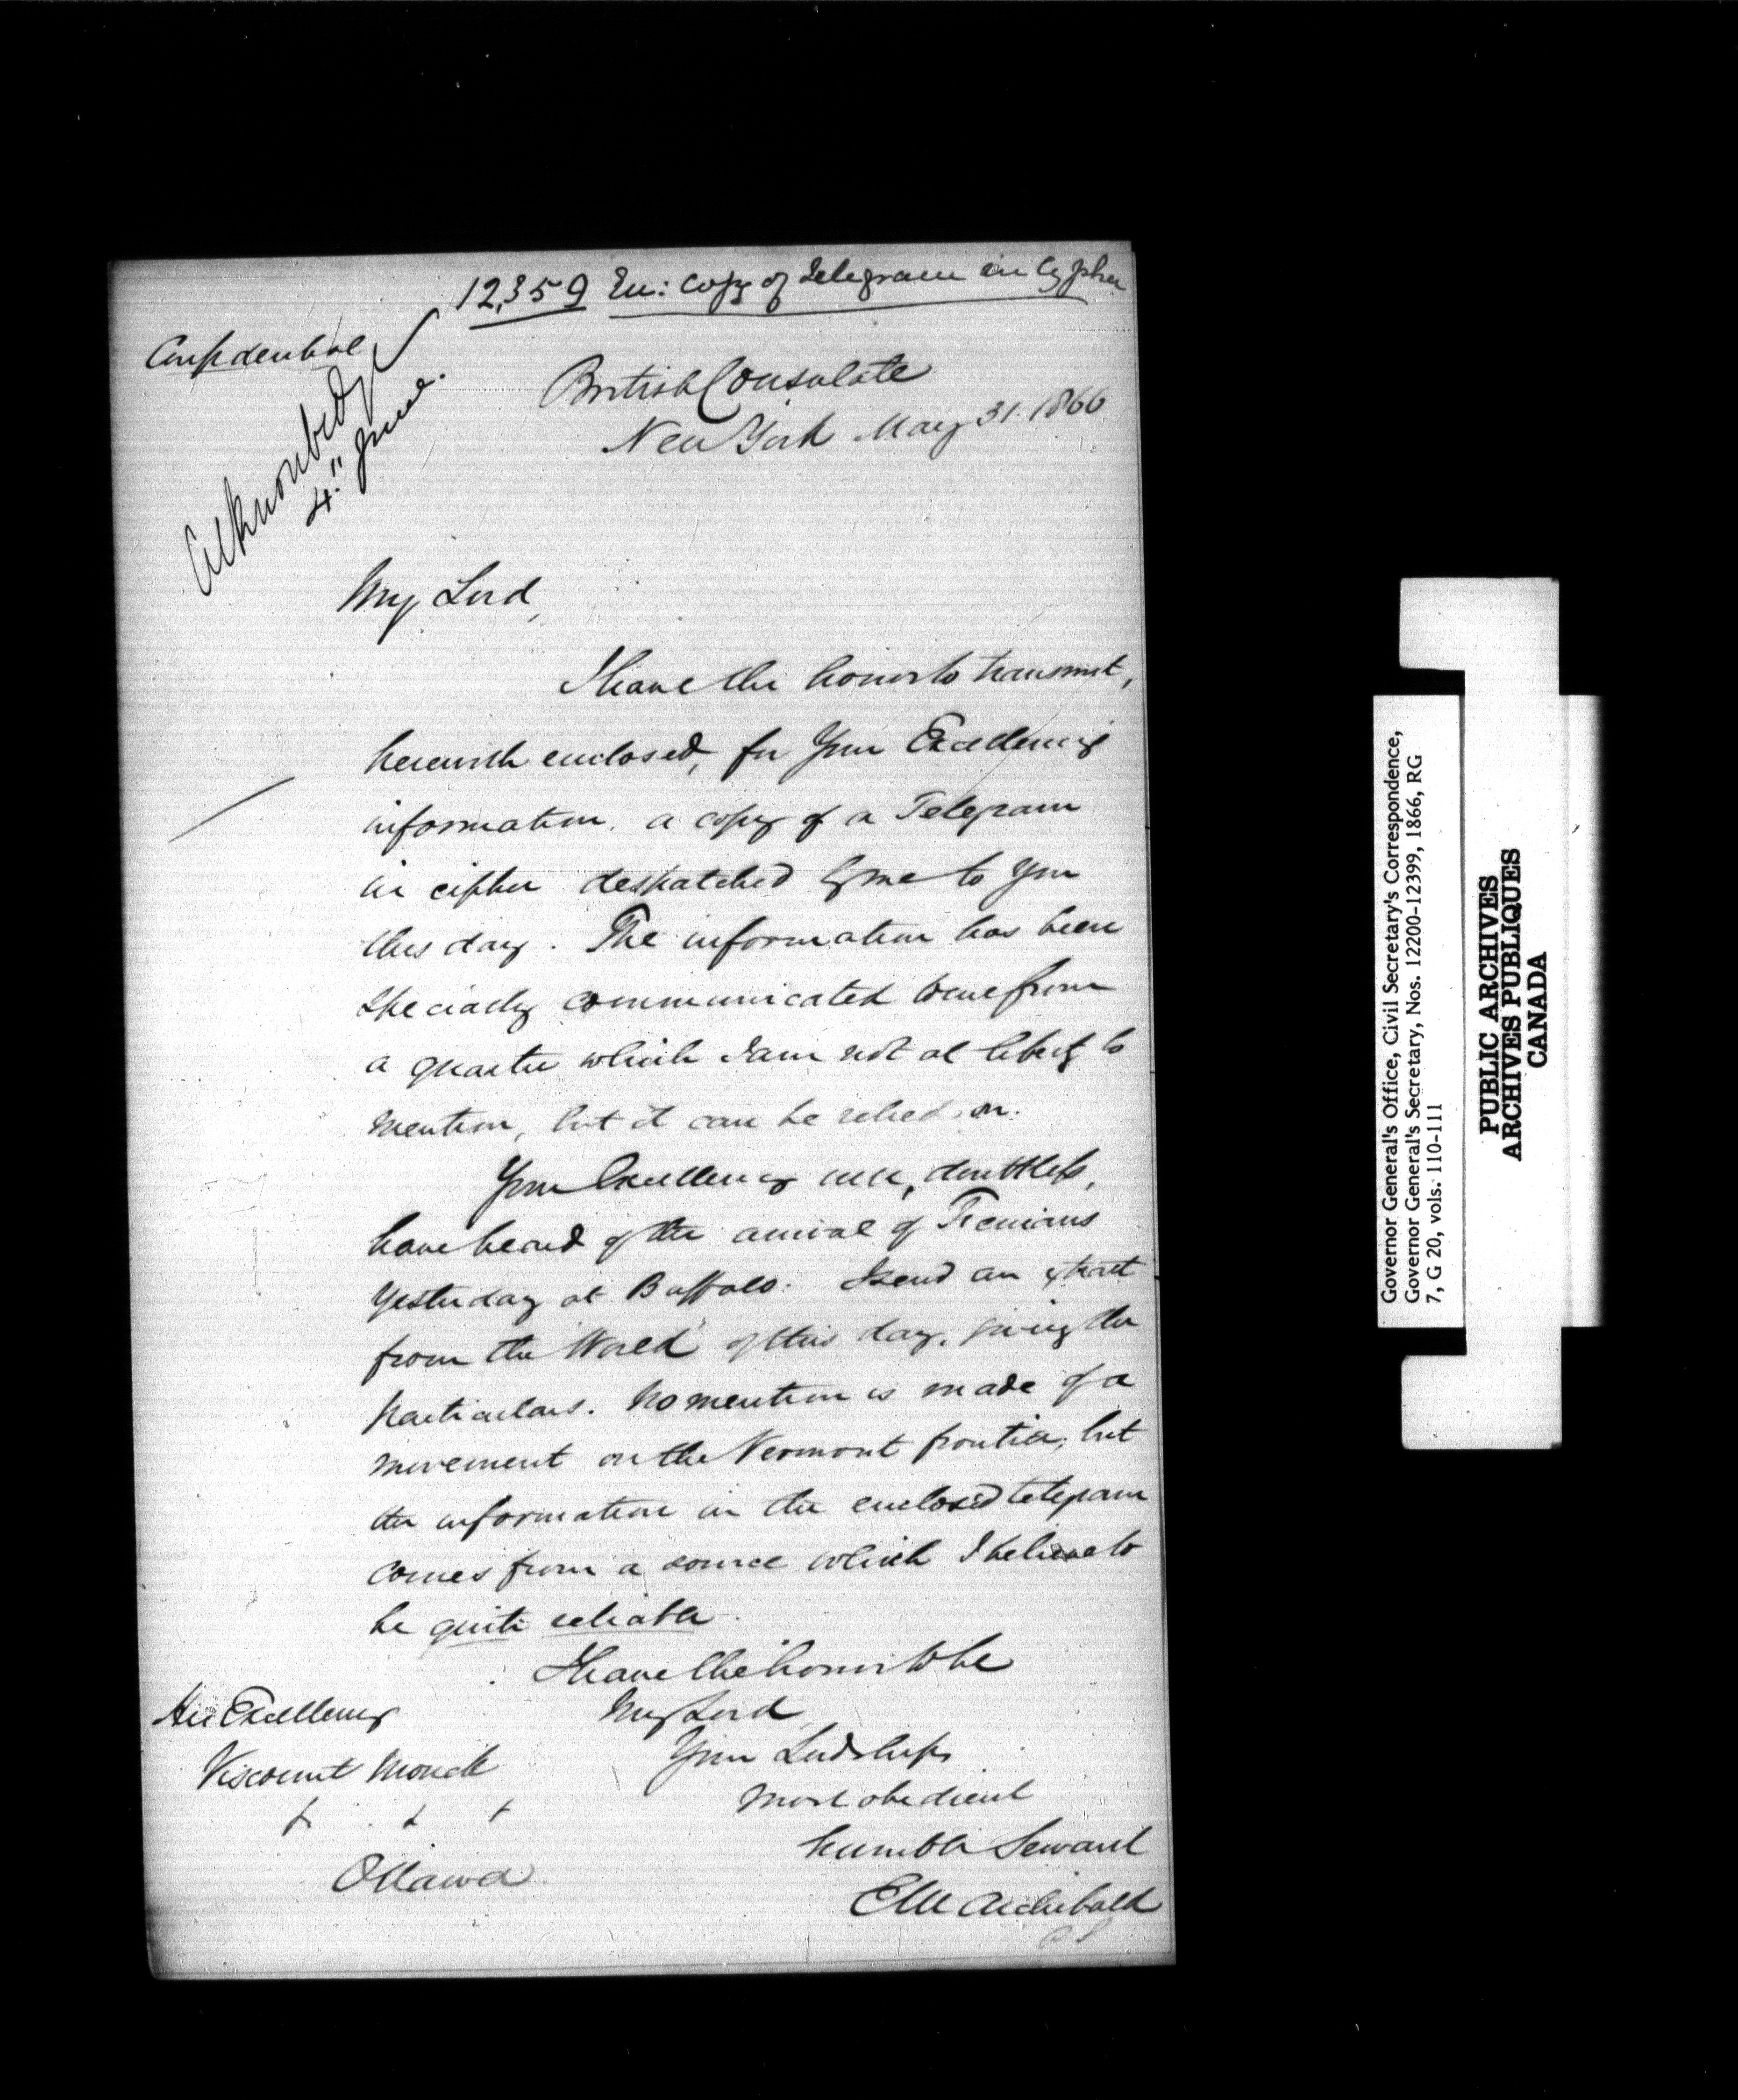 12,359 En: Copy of Telegram in Cypher
Confidential
Acknowledged
4th June.
British Consulate
New York May 31. 1866
My Lord,
I have the honor to transmit,
herewith enclosed, for Your Excellency's
information, a copy of a Telegram
in cipher despatched by me to you
this day. The information has been
specially communicated to me from
a quarter which I am not at liberty to
mention, but it can be relied on.
Your Excellency will, doubtless,
have heard of the arrival of Fenians
yesterday at Buffalo. I send an extract
from the "World" of this day, giving the
particulars. No mention is made of a
movement on the Vermont frontier, but
the information in the enclosed telegram
comes from a source which I believe to
be quite reliable.
I have the honor to be
My Lord,
Your Lordship's
most obedient
humble Servant
E M Archibald
His Excellency
Viscount Monck
Ottawa
Governor General's Office, Civil Secretary's Correspondence,
Governor General's Secretary, Nos. 12200-12399, 1866, RG
7, G 20, vols. 110-111
PUBLIC ARCHIVES
ARCHIVES PUBLIQUES
CANADA